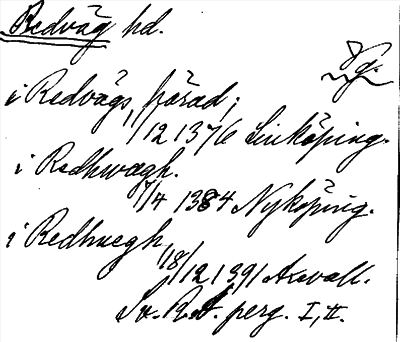 Redväg hd.
Vg.
i Redvägs härad;
1/12 1376 Linköping.
i Redhwægh.
7/4 1384 Nyköping.
i Redhuegh
18/12 1391 Axvall.
Sv. R.A. perg. I, II.